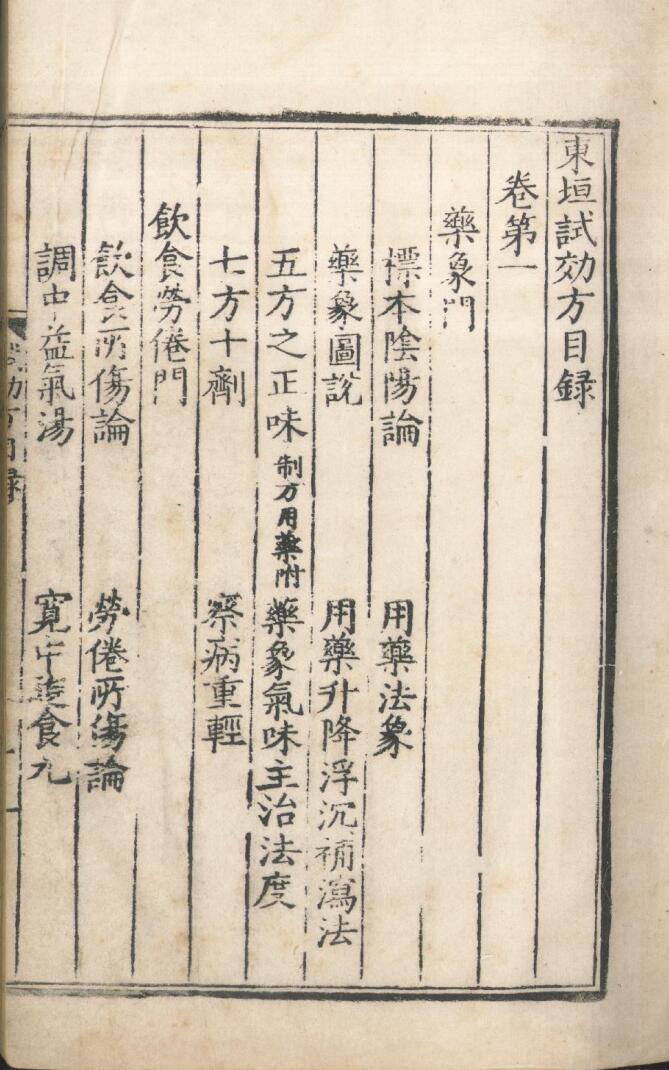 東垣試効方目録
卷第一
藥象門
標本陰陽論 用藥法象
藥象圖説 用藥升降浮沉補瀉法
五方之正味 制方用藥附 藥象氣味主治法度
七方十劑 察病重輕
飲食勞倦門
飲食所傷論 勞倦所傷論
調中益氣湯 寬中進食丸
効方目録